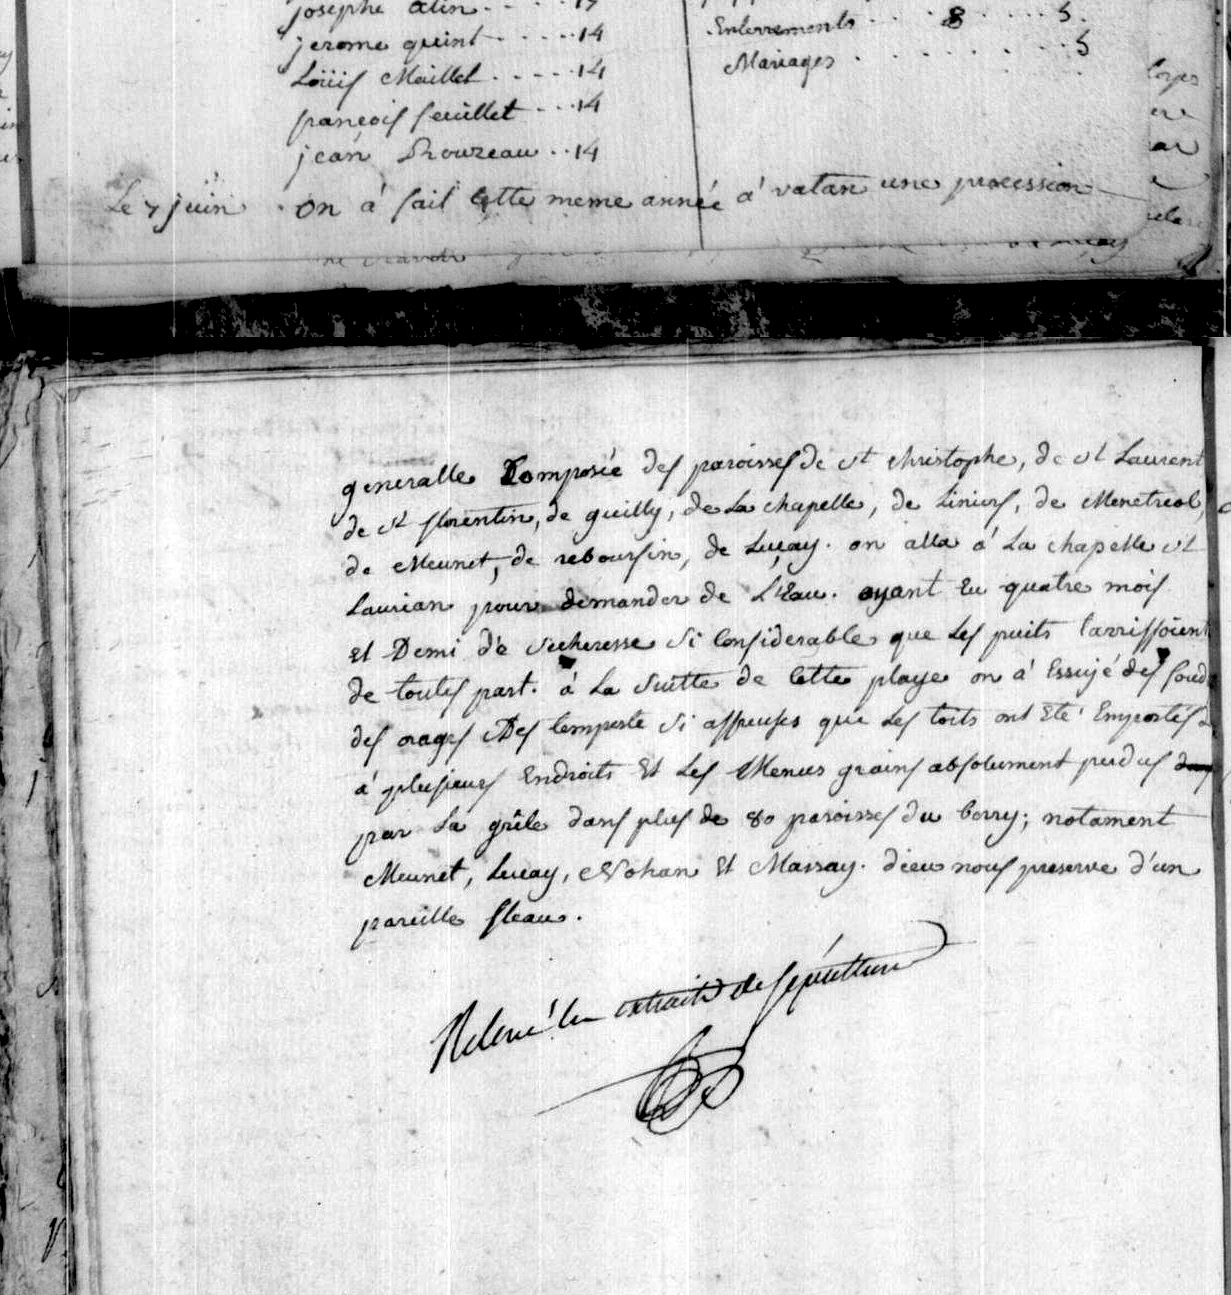 josephe alin 14
jerome quint 14
Loüis Maillet 14
françois feuillet 14
jean Rouzeau 14
Enterrements 8 5.
Mariages 5
Le 7 juin on á fait cette meme année á vatan une procession
generalle Composée des paroisses de st christophe, de st Laurent
de st florentin, de guilly, de La chapelle, de Liniers, de Menetreol,
de Meunet, de reboursin, de Luçay. on alla á La chapelle st
Laurian pour demander de L'Eau. ayant Eu quatre mois
Et Demi de secheresse si Considerable que Les puits tarrissoient
de touts part. á La suitte de cette playe on á Essuyé des foud
des orages Des tempeste si affreuses que Les toits ont Eté Emportés
á plusieurs Endroits Et Les Menus grains absolument perdus
par La grêle dans plus de 80 paroisses du berry; notament
Meunet, Luçay, Nohan Et Massay. dieu nous preserve d'un
pareille fleau.
Relevé les extraits de sépulture